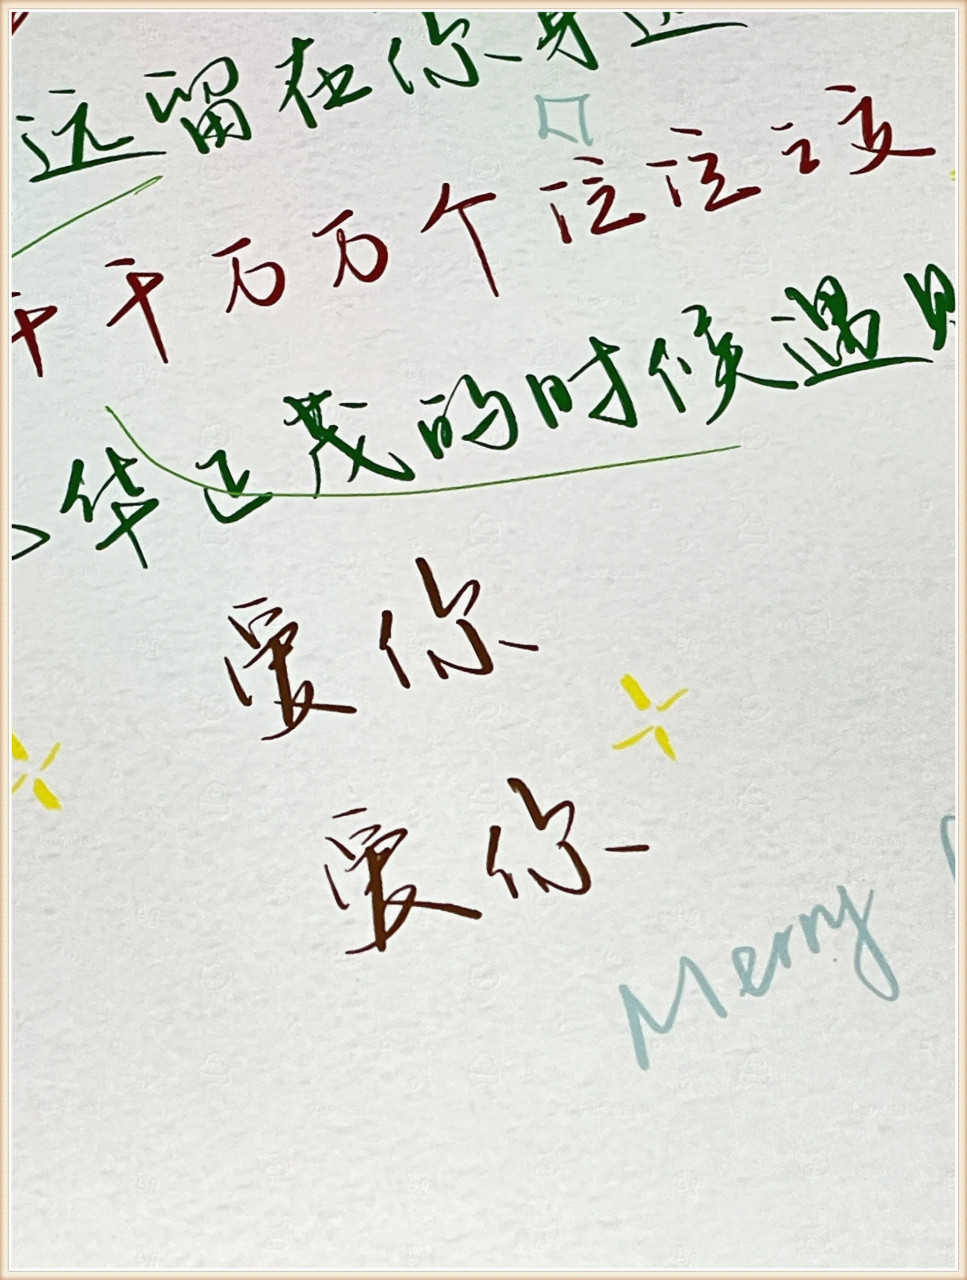 远留在你身边
千千万万个位位之交
华正茂的时候遇见
爱你
爱你
Merry